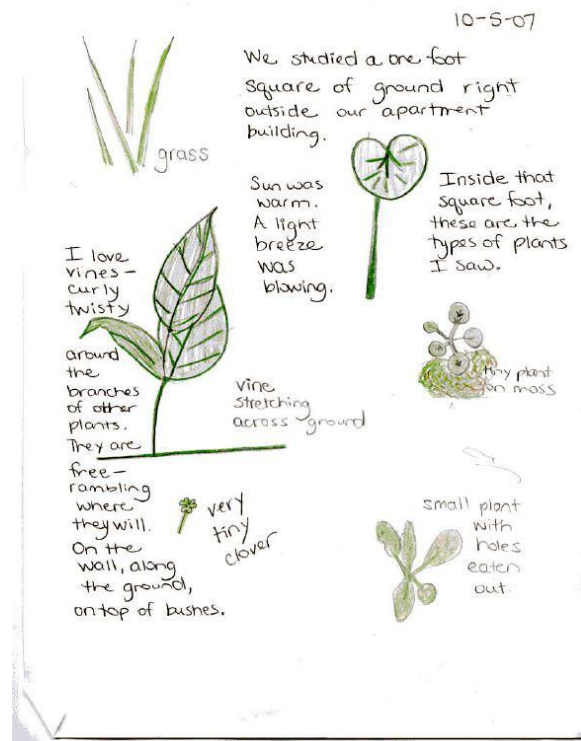 10-5-07
We studied a one foot
square of ground right
outside our apartment
building.
grass
Sun was
warm.
A light
breeze
was
blowing.
Inside that
square foot,
these are the
types of plants
I saw.
I love
vines-
curly
twisty
around
the
branches
of other
plants.
They are
free-
rambling
where
they will.
On the
wall, along
the ground,
on top of bushes.
tiny plant
on moss
vine
stretching
across ground
very
tiny
clover
small plant
with
holes
eaten
out.